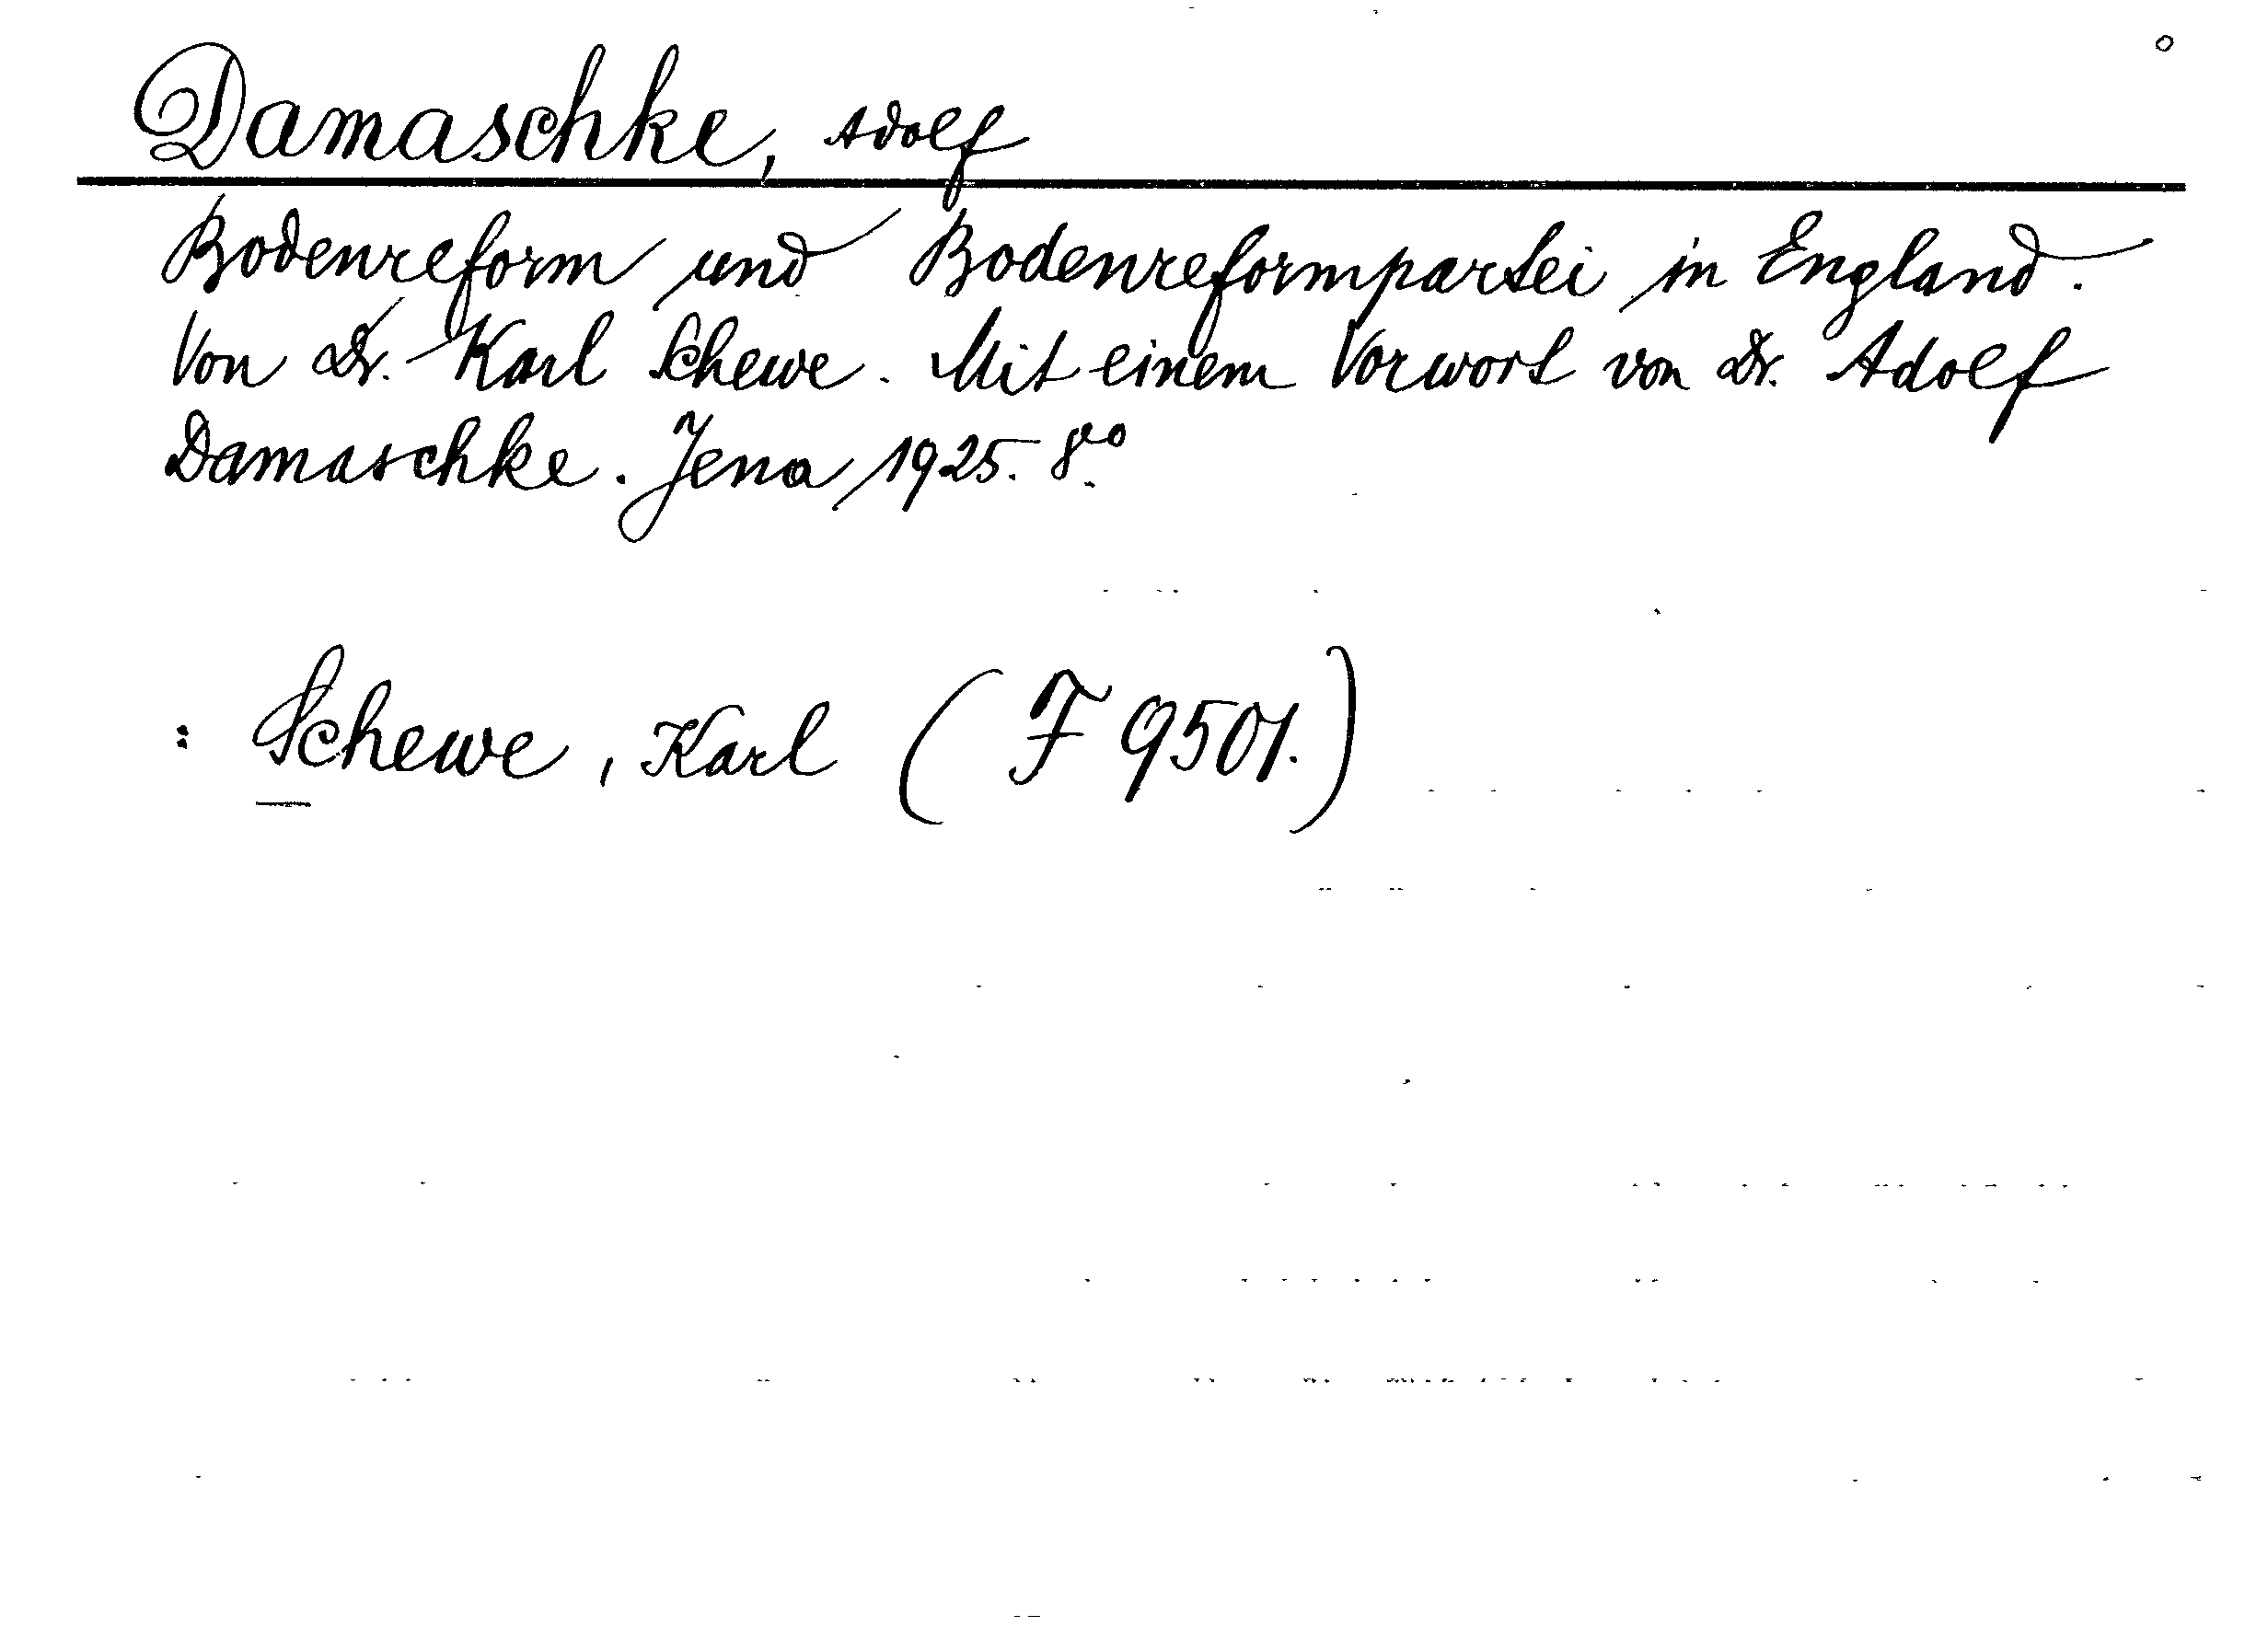 Damaschke, Adolf
Bodenreform und Bodenreformpartei in England.
Von Dr. Karl Schewe. Mit einem Vorwort von Dr. Adolf
Damaschke. Jena, 1925. 8vo.
: Schewe, Karl (F 9501.)